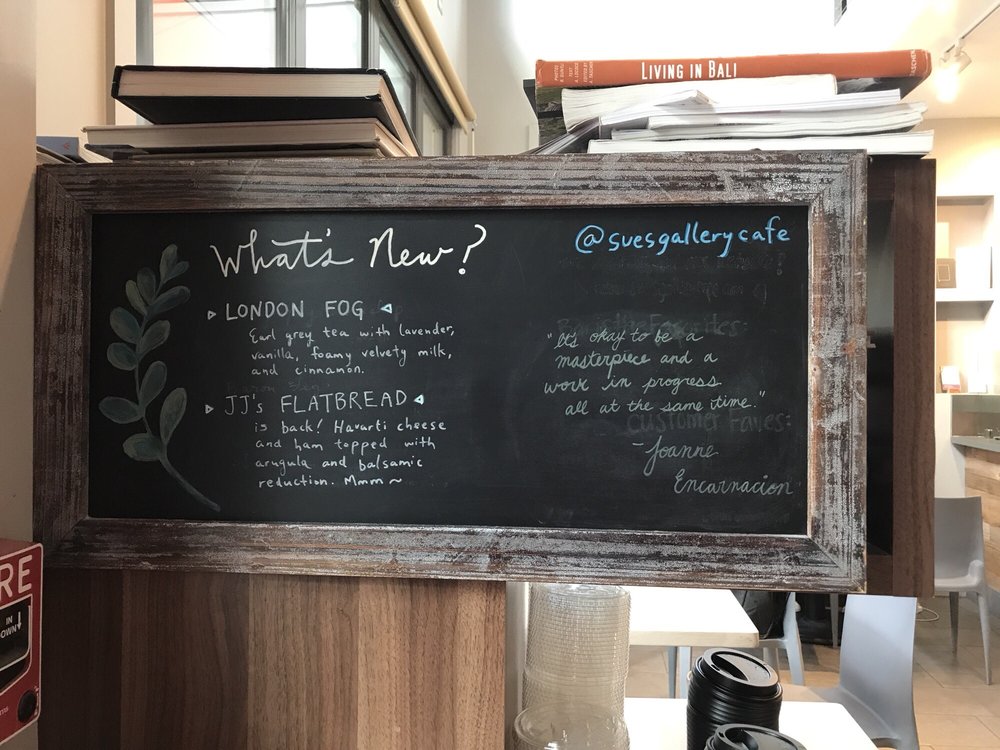 LIVING IN BALI
TASCHEN
What's New?
@suesgallerycafe
▷ LONDON FOG ◁
Earl grey tea with lavender,
vanilla, foamy velvety milk,
and cinnamon.
▷ JJ's FLATBREAD ◁
is back! Havarti cheese
and ham topped with
arugula and balsamic
reduction. Mmm~
"It's okay to be a
masterpiece and a
work in progress
all at the same time."
- Joanne
Encarnacion
Customer Faves:
RE
IN
DOWN